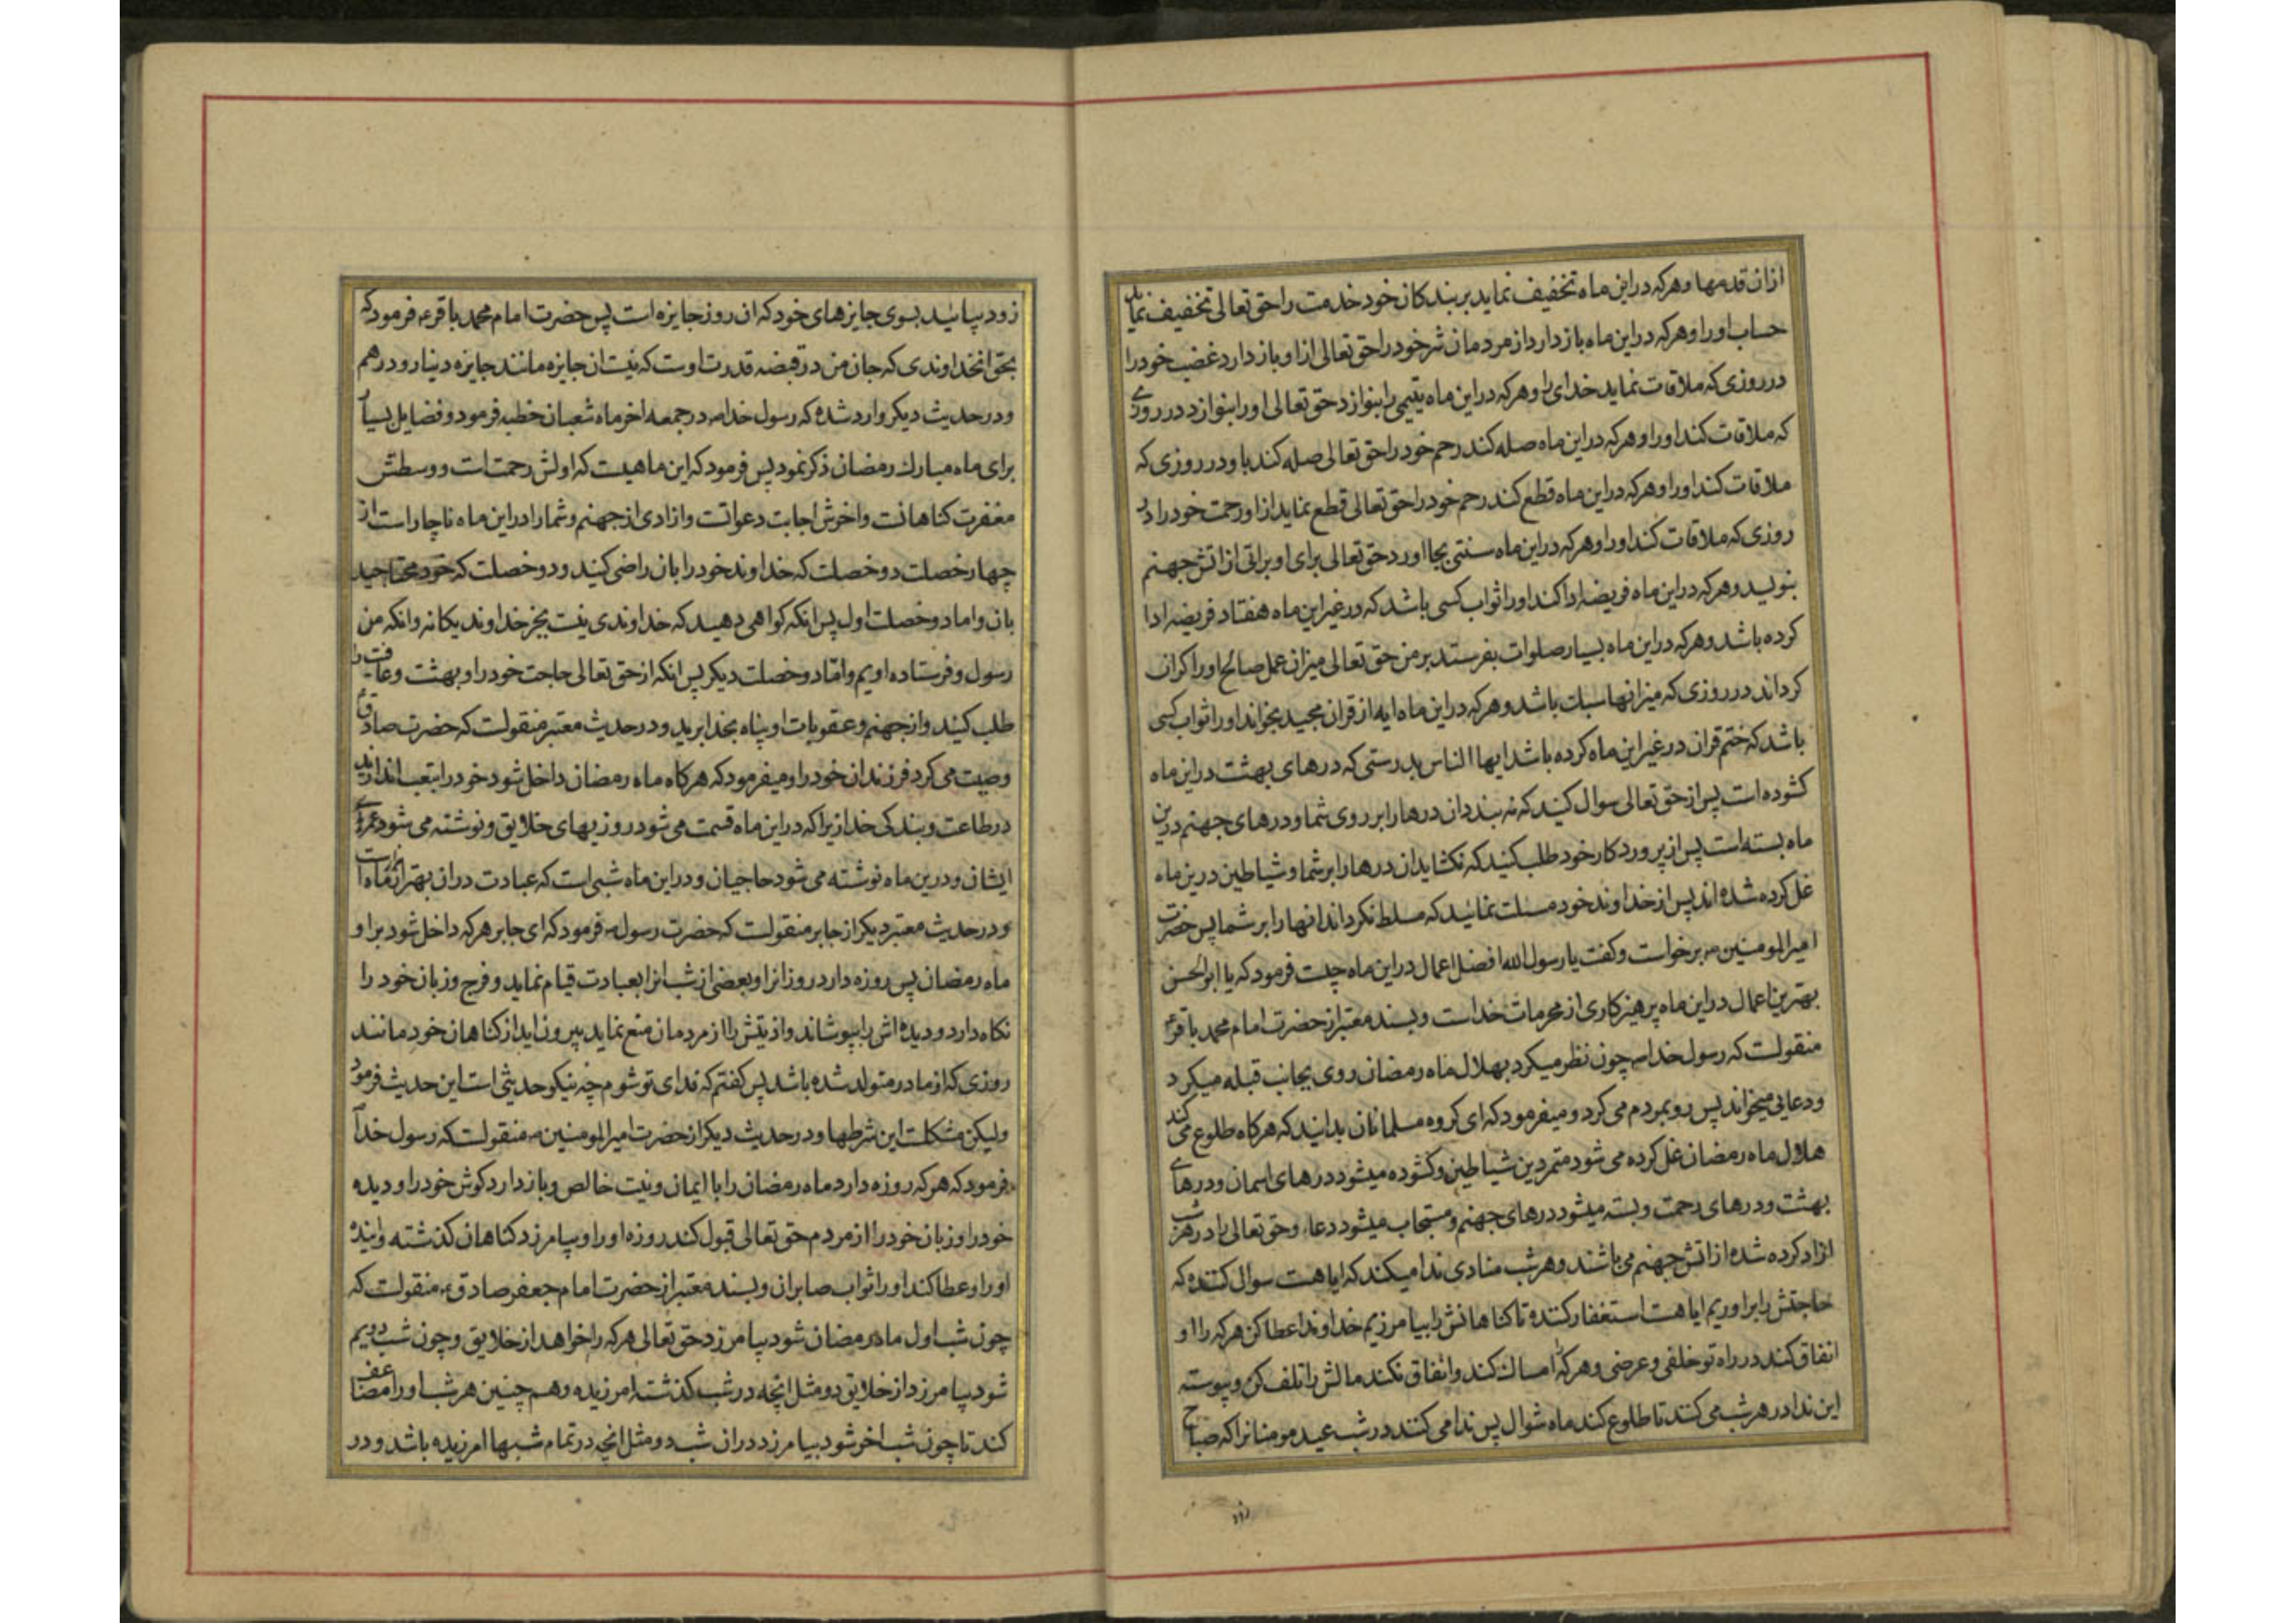 ازان قدمها وهرکه دراین ماه تخفیف نماید بربندکان خود خدمت راحق تعالی تخفیف نماید
حساب اورا وهرکه دراین ماه بازدارد از مردمان شر خود راحق تعالی ازاو بازدارد غضب خود را
درروزی که ملاقات نماید خدای را وهرکه دراین ماه یتیمی را بنوازد حق تعالی اورا بنوازد در روزی
که ملاقات کند اورا وهرکه دراین ماه صله کند رحم خود راحق تعالی صله کند باو در روزی که
ملاقات کند اورا وهرکه دراین ماه قطع کند رحم خود راحق تعالی قطع نماید ازاو رحمت خود را در
روزی که ملاقات کند اورا وهرکه دراین ماه سنتی بجا اورد حق تعالی برای او براتی از اتش جهنم
بنوید وهرکه دراین ماه فریضه ادا کند اورا ثواب کسی باشد که در غیر این ماه هفتاد فریضه ادا
کرده باشد وهرکه دراین ماه بسیار صلوات بفرستد بر من حق تعالی میزان عمل صالح اورا کران
کرداند در روزی که میزانها سبک باشد وهرکه دراین ماه ایه از قران مجید بخواند اورا ثواب کسی
باشد که ختم قران در غیر این ماه کرده باشد ایها الناس بدرستی که درهای بهشت دراین ماه
کشوده است پس از حق تعالی سوال کنید که نه بندد ان درها را بر روی شما ودرهای جهنم درین
ماه بسته است پس از پروردکار خود طلب کنید که نکشاید ان درها را بر شما وشیاطین درین ماه
غل کرده شده اند پس از خداوند خود مسئلت نمائید که مسلط نکرداند انها را بر شما پس حضرت
امیرالمومنین برخواست وکفت یا رسول الله افضل اعمال دراین ماه چیست فرمود که یا ابوالحسن
بهترین اعمال دراین ماه پرهیزکاری از محرمات خداست وبسند معتبر از حضرت امام محمد باقرع
منقولست که رسول خدا ص چون نظر میکرد بهلال ماه رمضان روی بجانب قبله میکرد
ودعایی میخواند پس رو بمردم می کرد ومیفرمود که ای کروه مسلمانان بدانید که هرکاه طلوع می کند
هلال ماه رمضان غل کرده می شود متمردین شیاطین وکشوده میشود درهای اسمان ودرهای
بهشت ودرهای رحمت وبسته میشود درهای جهنم ومستجاب میشود دعا وحق تعالی را در هر شب
ازاد کرده شده از اتش جهنم می باشند وهر شب منادی ندا میکند که ایا هست سوال کننده که
حاجتش را براوریم ایا هست استغفار کننده تا کناهانش را بیامرزیم خداوندا عطا کن هرکه را او
انفاق کند در راه تو خلفی وعوضی وهرکه امساک کند وانفاق نکند مالش را تلف کن وپیوسته
این ندا در هر شب می کند تا طلوع کند ماه شوال پس ندا می کنند در شب عید مومنانرا که صباح
زود
زود بیائید بسوی جایزهای خود که ان روز جایزه است پس حضرت امام محمد باقرع فرمود که
بحق انخداوندی که جان من در قبضه قدرت اوست که نیست ان جایزه مانند جایزه دینار ودرهم
ودر حدیث دیکر وارد شده که رسول خدا ص در جمعه اخر ماه شعبان خطبه فرمود وفضایل بسیار
برای ماه مبارک رمضان ذکر نمود پس فرمود که این ماهیست که اولش رحمت است ووسطش
مغفرت کناهانست واخرش اجابت دعواتست وازادی از جهنم وشما را دراین ماه ناچار است از
چهار خصلت دو خصلت که خداوند خود را بان راضی کنید ودو خصلت که خود محتاجید
بان واما دو خصلت اول پس انکه کواهی دهید که خداوندی نیست بجز خداوند یکانه وانکه من
رسول وفرستاده اویم واما دو خصلت دیکر پس انکه از حق تعالی حاجت خود را وبهشت وعافیت را
طلب کنید واز جهنم وعقوبات او پناه بخدا برید ودر حدیث معتبر منقولست که حضرت صادقع
وصیت می کرد فرزندان خود را ومیفرمود که هرکاه ماه رمضان داخل شود خود را بتعب اندازید
در طاعت وبندکی خدا زیرا که دراین ماه قسمت می شود روزیهای خلایق ونوشته می شود عمرهای
ایشان ودرین ماه نوشته می شود حاجیان ودراین ماه شبی است که عبادت دران بهتر از هزار ماه است
ودر حدیث معتبر دیکر از جابر منقولست که حضرت رسول ص فرمود که ای جابر هرکه داخل شود بر او
ماه رمضان پس روزه دارد روز انرا وبعضی از شب انرا بعبادت قیام نماید وفرج وزبان خود را
نکاه دارد ودیده اش را بپوشاند واذیتش را از مردمان منع نماید بیرون اید از کناهان خود مانند
روزی که از مادر متولد شده باشد پس کفتم که فدای تو شوم چه نیکو حدیثی است این حدیث فرمود
ولیکن مشکلست این شرطها ودر حدیث دیکر از حضرت امیرالمومنین منقولست که رسول خدا ص
فرمود که هرکه روزه دارد ماه رمضان را با ایمان ونیت خالص وبازدارد کوش خود را ودیده
خود را وزبان خود را از مردم حق تعالی قبول کند روزه اورا وبیامرزد کناهان کذشته وایندهٔ
اورا وعطا کند اورا ثواب صابران وبسند معتبر از حضرت امام جعفر صادقع منقولست که
چون شب اول ماه رمضان شود بیامرزد حق تعالی هرکه را خواهد از خلایق وچون شب دویم
شود بیامرزد از خلایق دو مثل انچه در شب کذشته امرزیده وهم چنین هر شب اورا مضاعف
کند تا چون شب اخر شود بیامرزد دران شب دو مثل انچه در تمام شبها امرزیده باشد ودر